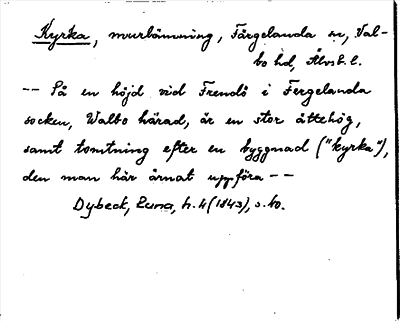 Kyrka, murlämning, Färgelanda sn, Val-
bo hd, Älvsb. l.
-- På en höjd vid Frendö i Fergelanda
socken, Walbo härad, är en stor ättehög,
samt tomtning efter en byggnad ("kyrka"),
den man här ärnat uppföra --
Dybeck, Runa, h. 4 (1843), s. 60.